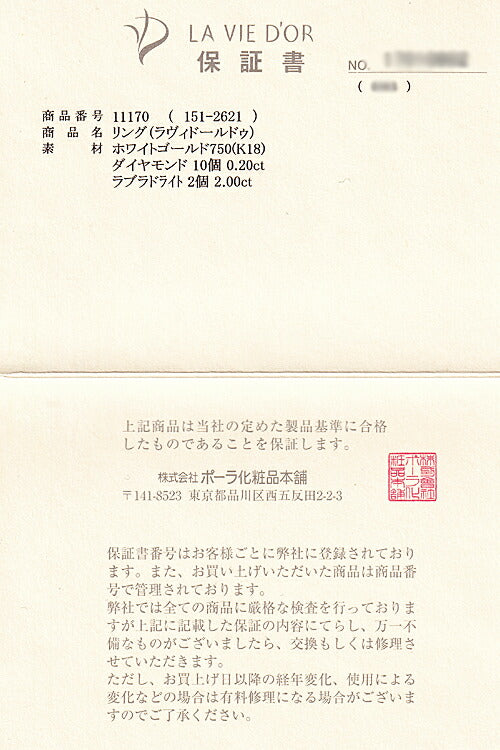 LA VIE D'OR
保証書
NO.
( )
商品番号 11170 ( 151-2621 )
商品名 リング(ラヴィドールドゥ)
素材 ホワイトゴールド750(K18)
ダイヤモンド 10個 0.20ct
ラブラドライト 2個 2.00ct
上記商品は当社の定めた製品基準に合格
したものであることを保証します。
株式会社 ポーラ化粧品本舗
〒141-8523 東京都品川区西五反田2-2-3
株式會社
ポーラ化
粧品本舗
保証書番号はお客様ごとに弊社に登録されており
ます。また、お買い上げいただいた商品は商品番
号で管理されております。
弊社では全ての商品に厳格な検査を行っておりま
すが上記に記載した保証の内容にてらし、万一不
備なものがございましたら、交換もしくは修理さ
せていただきます。
ただし、お買上げ日以降の経年変化、使用による
変化などの場合は有料修理になる場合がございま
すのでご了承ください。